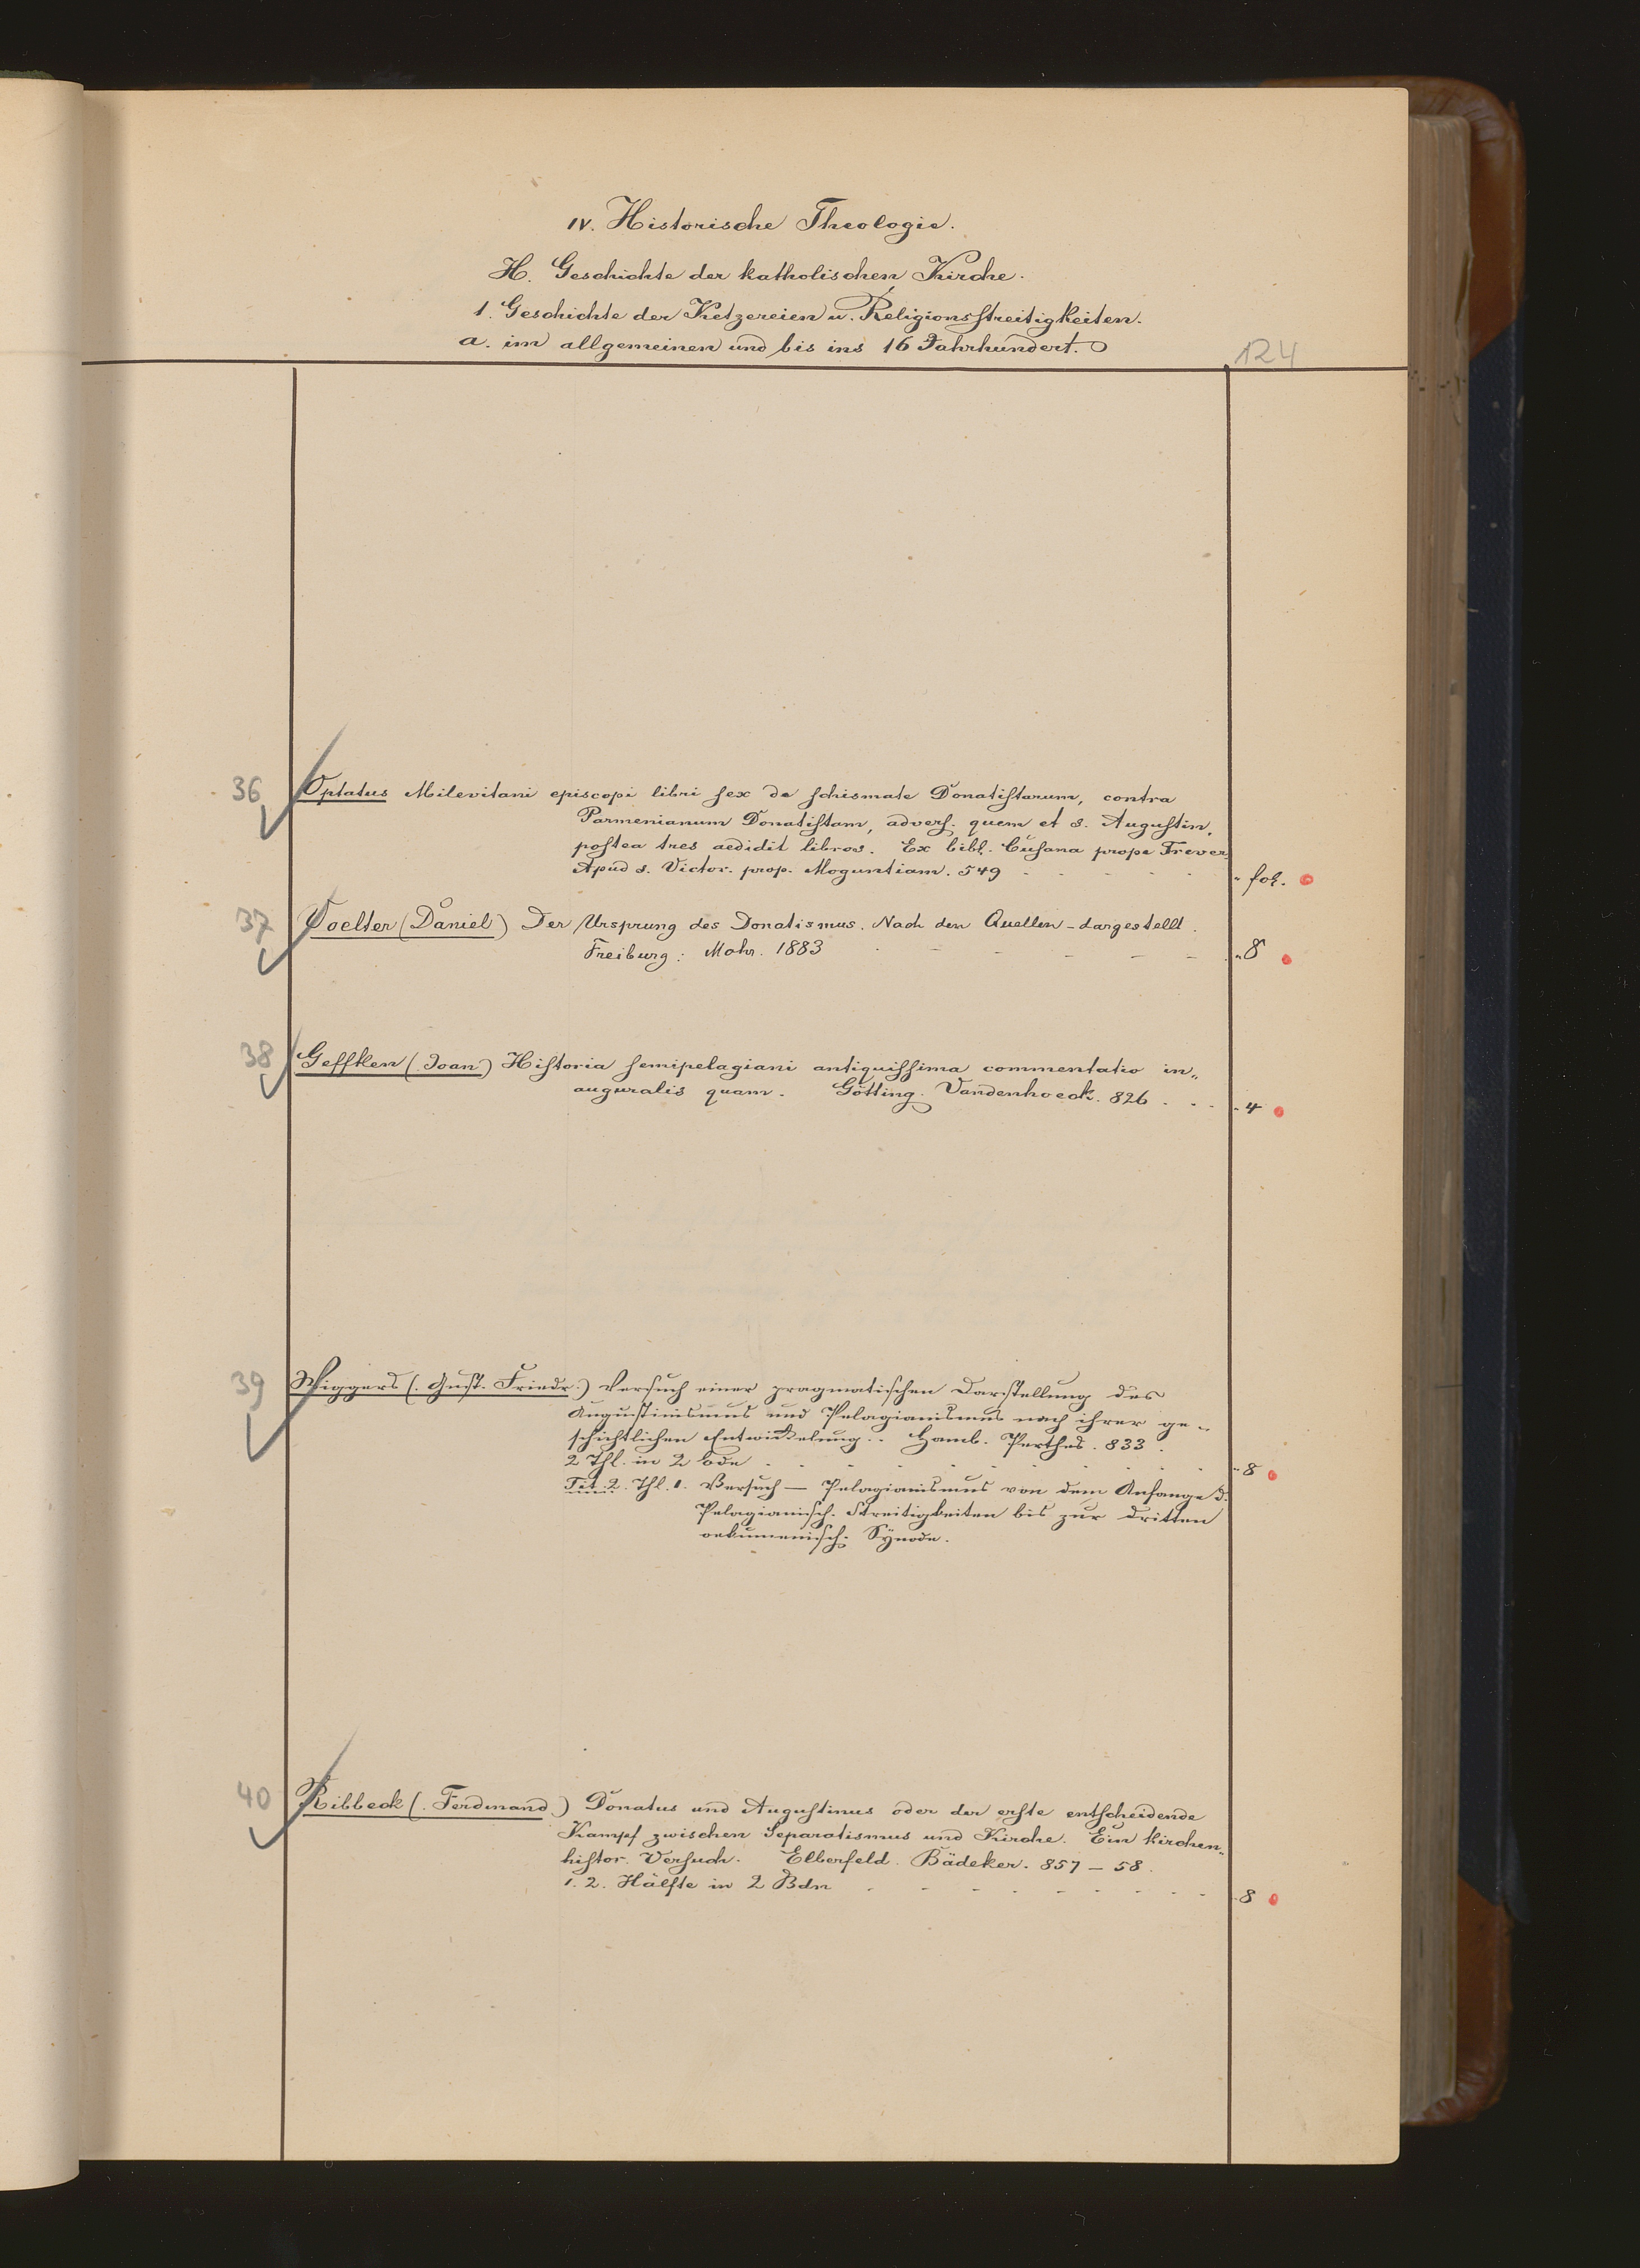 IV. Historische Theologie.
H. Geschichte der katholischen Kirche.
1. Geschichte der Ketzereien u. Religionsstreitigkeiten.
a. im allgemeinen und bis ins 16 Jahrhundert.
124
36 Optatus Milevitani episcopi libri sex de schismate Donatistarum, contra
Parmenianum Donatistam, advers. quem et s. Augustin.
postea tres aedidit libros. Ex bibl. Cusana prope Trever.
Apud s. Victor. prop. Moguntiam. 549 - - - - - fol.
37 Voelter (Daniel) Der Ursprung des Donatismus. Nach den Quellen - dargestellt.
Freiburg: Mohr. 1883 - - - - - 8
38 Geffken (Joan) Historia semipelagiani antiquissima commentatio in„
auguralis quam. Götting. Vandenhoeck. 826 . . . 4
39 Wiggers (. Gust. Friedr.) Versuch einer pragmatischen Darstellung des
Augustinismus und Pelagianismus nach ihrer ge„
schichtlichen Entwickelung.. Hamb. Perthes. 833.
2 Thl. in 2 Bde . . . . . . . . . 8
Tit. 2. Thl. 1. Versuch — Pelagianismus von dem Anfange d.
Pelagianisch. Streitigkeiten bis zur dritten
oekumenisch. Synode.
40 Ribbeck (. Ferdinand.) Donatus und Augustinus oder der erste entscheidende
Kampf zwischen Separatismus und Kirche. Ein kirchen„
histor. Versuch. Elberfeld. Bädeker. 857 – 58.
1. 2. Hälfte in 2 Bdn - - - - - - - - 8